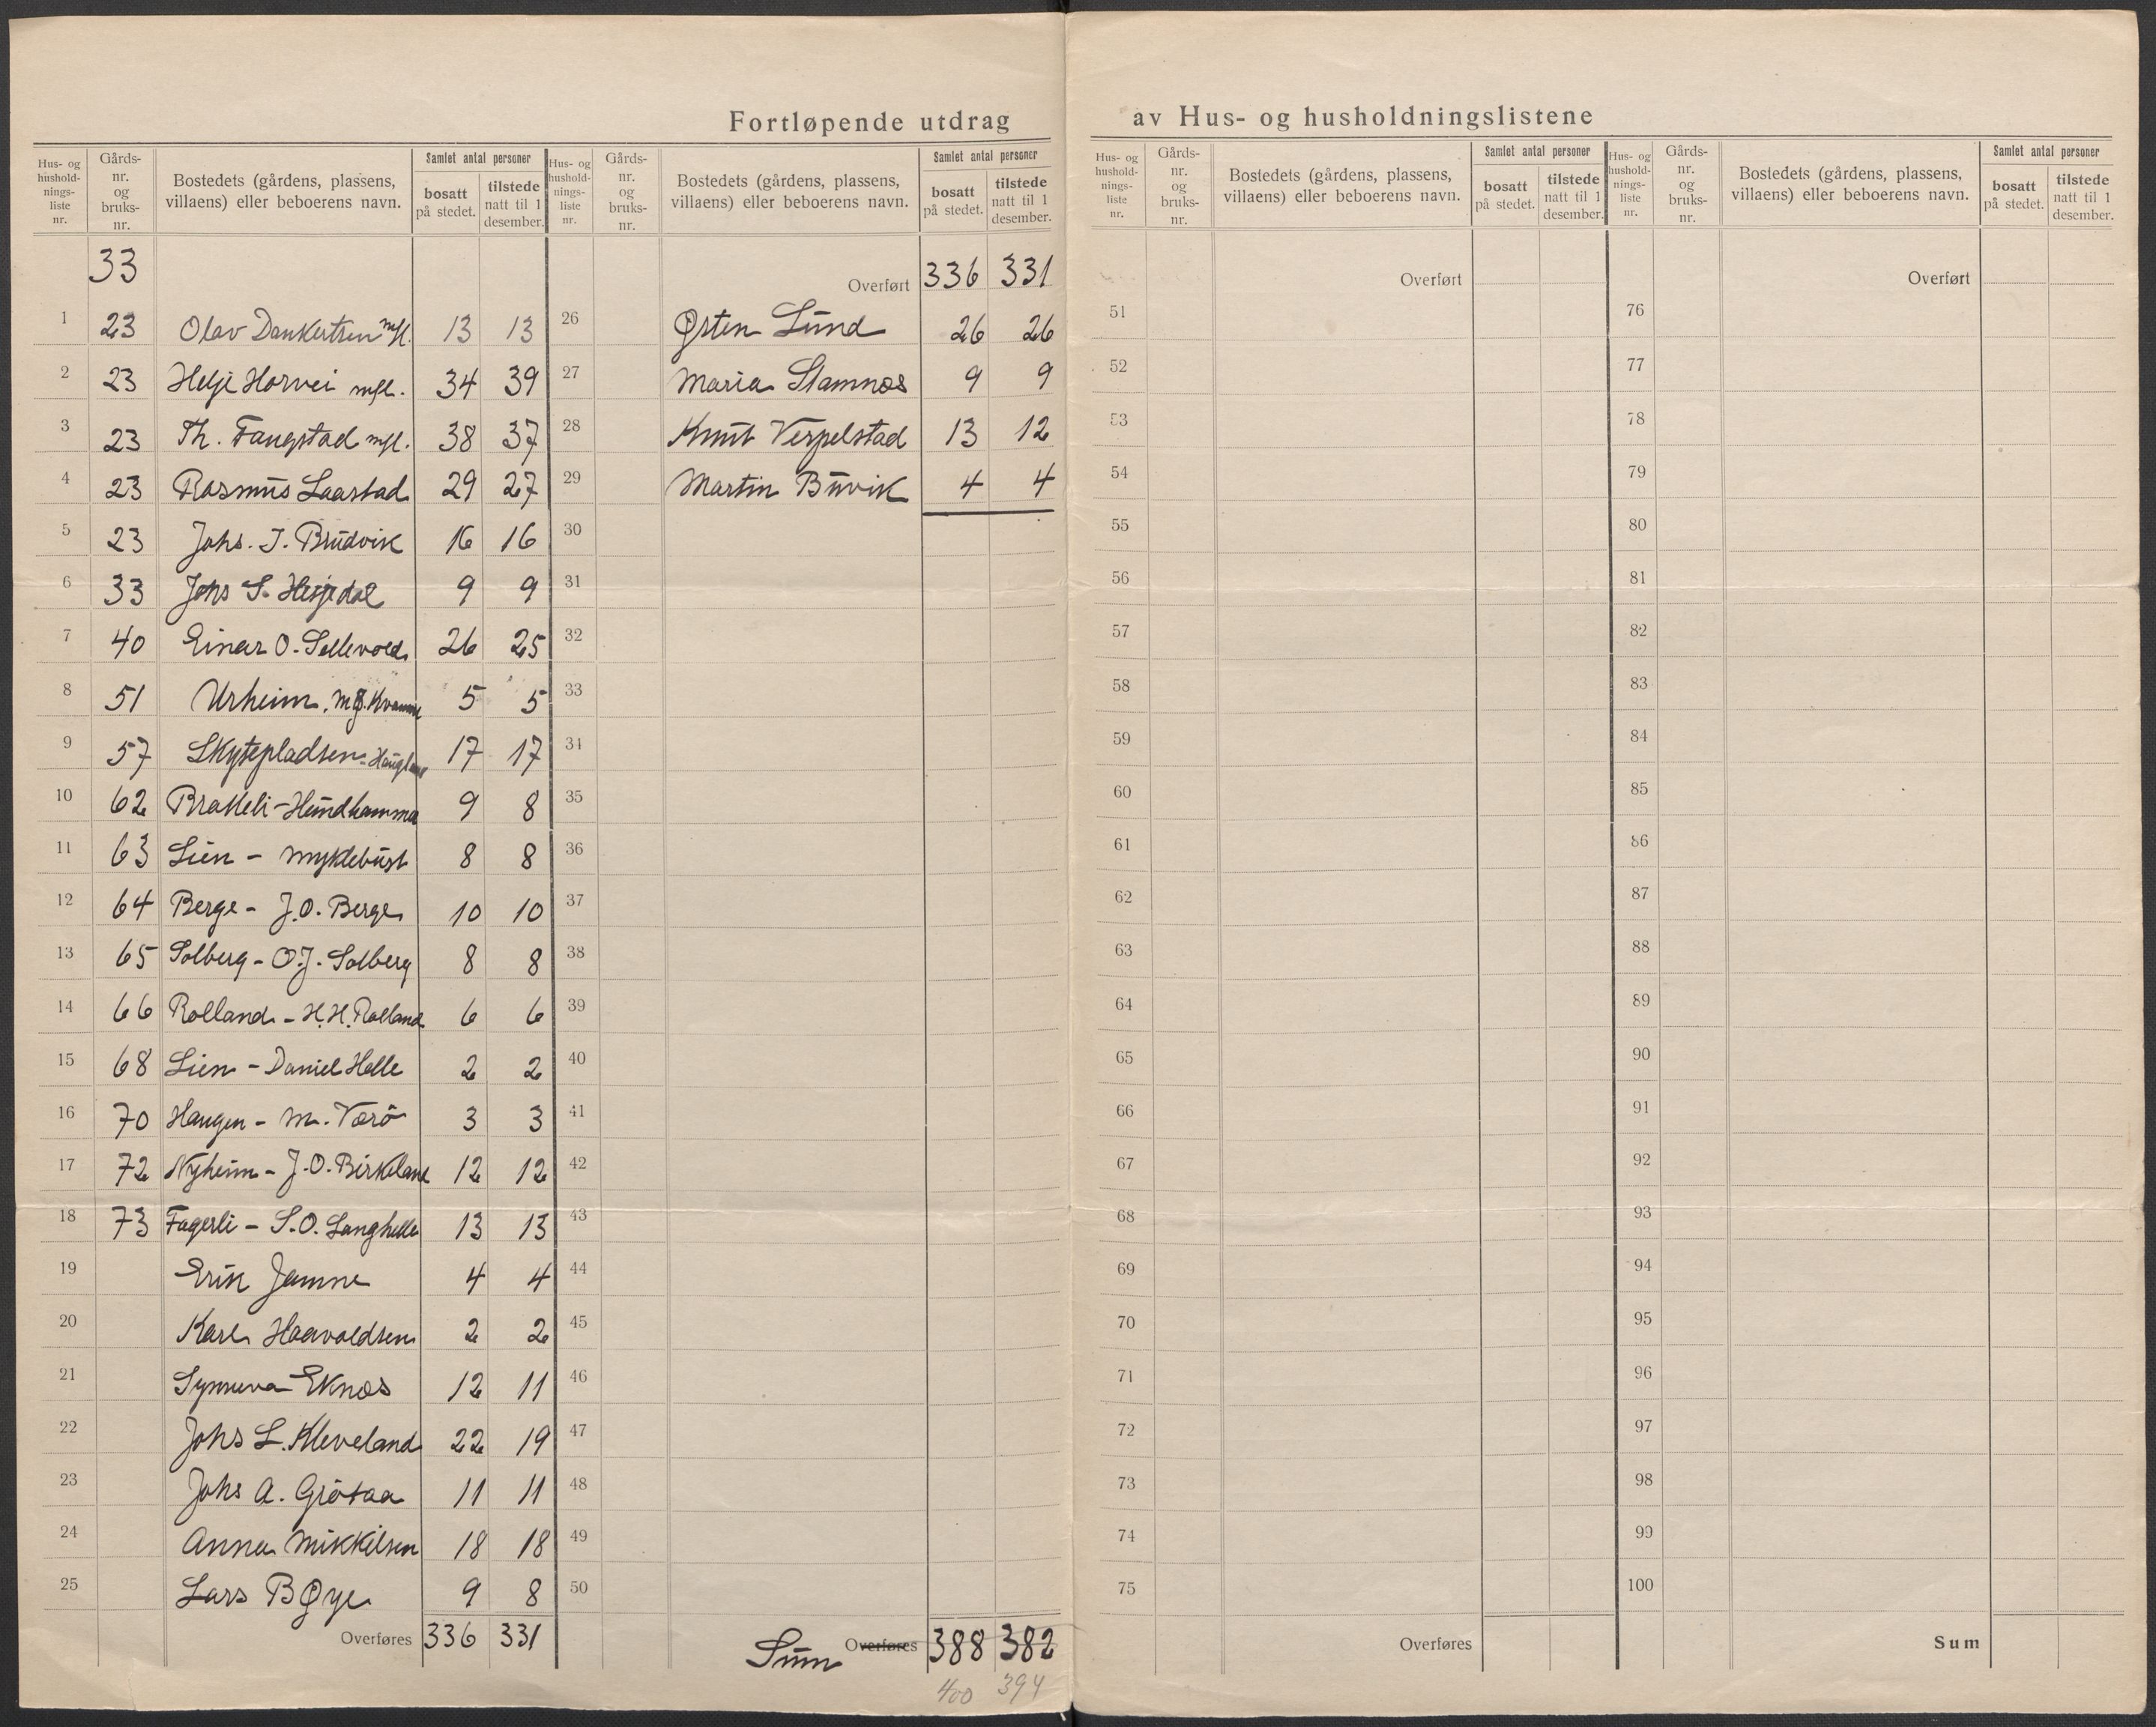 Fortløpende utdrag av Hus- og husholdningslistene
Hus- og hushold-nings-liste nr. Gårds-nr. og bruks-nr. Bostedets (gårdens, plassens, villaens) eller beboerens navn. Samlet antal personer bosatt på stedet. tilstede natt til 1 desember.
33
1 23 Olav Dankertsen mfl. 13 13
2 23 Helje Horvei mfl. 34 39
3 23 Th. Fangstad mfl. 38 37
4 23 Rasmus Laastad 29 27
5 23 Johs. J. Brudvik 16 16
6 33 Johs S. Hesjedal 9 9
7 40 Einar O. Sellevold 26 25
8 51 Urheim. Kvamme 5 5
9 57 Skytepladsen - Haugland 17 17
10 62 Brakeli - Hundhammar 9 8
11 63 Lien - Myklebust 8 8
12 64 Berge - J.O. Berge 10 10
13 65 Solberg - O.J. Solberg 8 8
14 66 Rolland - H.H. Rolland 6 6
15 68 Lien - Daniel Helle 2 2
16 70 Haugen - M. Værö 3 3
17 72 Nyheim - J.O. Birkeland 12 12
18 73 Fagerli - S.O. Langhelle 13 13
19 Erik Jamne 4 4
20 Karl Haavoldsen 2 2
21 Synneva Eknæs 12 11
22 Johs L. Kleveland 22 19
23 Johs A. Grötaa 11 11
24 Anna Mikkelsen 18 18
25 Lars BØye 9 8
Overføres 336 331
Hus- og hushold-nings-liste nr. Gårds-nr. og bruks-nr. Bostedets (gårdens, plassens, villaens) eller beboerens navn. Samlet antal personer bosatt på stedet. tilstede natt til 1 desember.
Overført 336 331
26 Østen Lund 26 26
27 Maria Stamnæs 9 9
28 Knut Verpelstad 13 12
29 Martin Buvik 4 4
30
31
32
33
34
35
36
37
38
39
40
41
42
43
44
45
46
47
48
49
50
Sum Overføres 388 382
400 394
Hus- og hushold-nings-liste nr. Gårds-nr. og bruks-nr. Bostedets (gårdens, plassens, villaens) eller beboerens navn. Samlet antal personer bosatt på stedet. tilstede natt til 1 desember.
Overført
51
52
53
54
55
56
57
58
59
60
61
62
63
64
65
66
67
68
69
70
71
72
73
74
75
Overføres
Hus- og hushold-nings-liste nr. Gårds-nr. og bruks-nr. Bostedets (gårdens, plassens, villaens) eller beboerens navn. Samlet antal personer bosatt på stedet. tilstede natt til 1 desember.
Overført
76
77
78
79
80
81
82
83
84
85
86
87
88
89
90
91
92
93
94
95
96
97
98
99
100
Sum